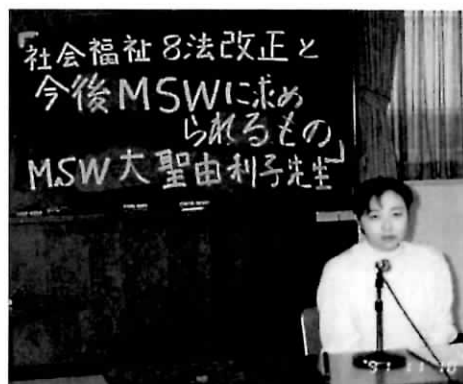 「社会福祉8法改正と
今後MSWに求め
られるもの」
MSW大聖由利子先生
'91 11 10